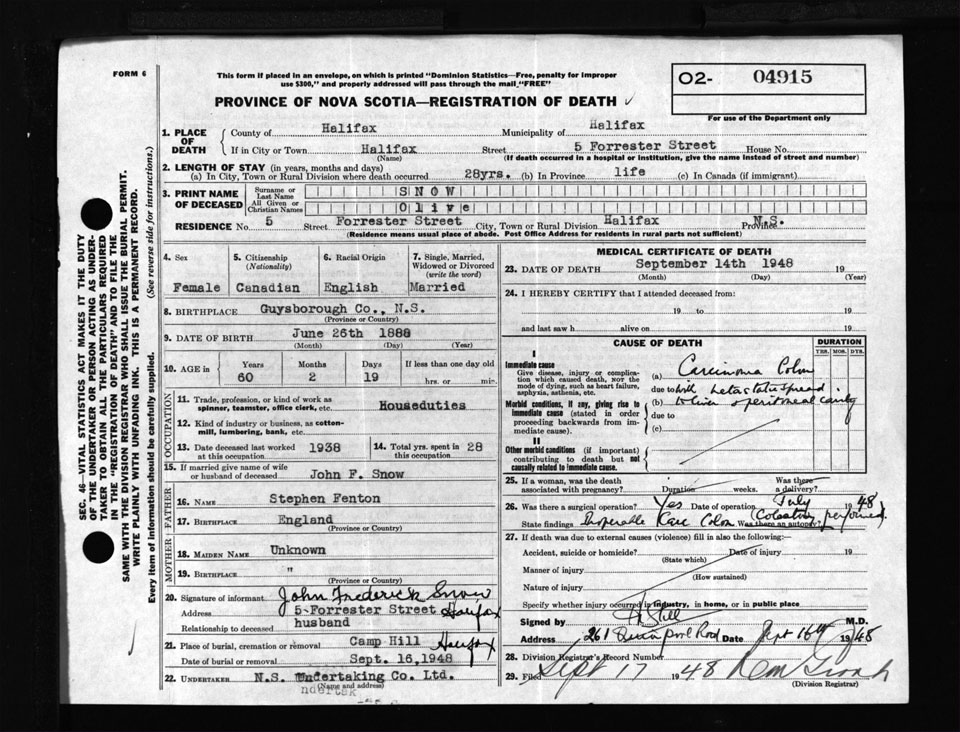 FORM 6
This form if placed in an envelope, on which is printed "Dominion Statistics—Free, penalty for improper
use $300," and properly addressed will pass through the mail "FREE"
O2- 04915
For use of the Department only
PROVINCE OF NOVA SCOTIA—REGISTRATION OF DEATH
1. PLACE OF DEATH { County of Halifax Municipality of Halifax
If in City or Town Halifax Street 5 Forrester Street House No.
(Name) (If death occurred in a hospital or institution, give the name instead of street and number)
2. LENGTH OF STAY (in years, months and days)
(a) In City, Town or Rural Division where death occurred 28yrs. (b) In Province life (c) In Canada (if immigrant)
3. PRINT NAME OF DECEASED Surname or Last Name SNOW
All Given or Christian Names Olive
RESIDENCE No. 5 Street Forrester Street City, Town or Rural Division Halifax Province N.S.
(Residence means usual place of abode. Post Office Address for residents in rural parts not sufficient)
4. Sex 5. Citizenship (Nationality) 6. Racial Origin 7. Single, Married, Widowed or Divorced (write the word)
Female Canadian English Married
8. BIRTHPLACE Guysborough Co., N.S.
(Province or Country)
9. DATE OF BIRTH June 26th 1888
(Month) (Day) (Year)
10. AGE in Years Months Days If less than one day old
60 2 19 hrs. or min.
OCCUPATION
11. Trade, profession, or kind of work as
spinner, teamster, office clerk, etc. Houseduties
12. Kind of industry or business, as cotton-
mill, lumbering, bank, etc.
13. Date deceased last worked
at this occupation 1938
14. Total yrs. spent in
this occupation 28
15. If married give name of wife
or husband of deceased John F. Snow
FATHER
16. NAME Stephen Fenton
17. BIRTHPLACE England
(Province or Country)
MOTHER
18. MAIDEN NAME Unknown
19. BIRTHPLACE "
(Province or Country)
20. Signature of informant John Frederick Snow
Address 5 Forrester Street Halifax
Relationship to deceased husband
21. Place of burial, cremation or removal Camp Hill Halifax
Date of burial or removal Sept. 16,1948
22. UNDERTAKER N.S. Undertaking Co. Ltd.
(Name and address)
ndertak
MEDICAL CERTIFICATE OF DEATH
23. DATE OF DEATH September 14th 1948 19
(Month) (Day) (Year)
24. I HEREBY CERTIFY that I attended deceased from:
19 to 19
and last saw h alive on 19
CAUSE OF DEATH DURATION
YRS. MOS. DYS.
I
Immediate cause
Give disease, injury or complica-
tion which caused death, NOT the
mode of dying, such as heart failure,
asphyxia, asthenia, etc.
(a) Carcinoma Colon
due to with metastatic spread
Morbid conditions, if any, giving rise to
immediate cause (stated in order
proceeding backwards from im-
mediate cause).
(b) to liver & peritoneal cavity
due to
(c)
II
Other morbid conditions (if important)
contributing to death but not
causally related to immediate cause.
25. If a woman, was the death
associated with pregnancy? Duration weeks. Was there
a delivery?
26. Was there a surgical operation? Yes Date of operation July 1948
State findings Inoperable Carc Colon Was there an autopsy? (Colostomy performed.
27. If death was due to external causes (violence) fill in also the following:—
Accident, suicide or homicide? Date of injury 19
(State which)
Manner of injury
(How sustained)
Nature of injury
Specify whether injury occurred in industry, in home, or in public place
Signed by M.D.
Address 261 Quinpool Road Date Sept 16th 1948
28. Division Registrar's Record Number
29. Filed Sept 17 1948
(Division Registrar)
SEC. 46—VITAL STATISTICS ACT MAKES IT THE DUTY
OF THE UNDERTAKER OR PERSON ACTING AS UNDER-
TAKER TO OBTAIN ALL THE PARTICULARS REQUIRED
IN THE "REGISTRATION OF DEATH" AND TO FILE THE
SAME WITH THE DIVISION REGISTRAR WHO SHALL ISSUE THE BURIAL PERMIT.
WRITE PLAINLY WITH UNFADING INK. THIS IS A PERMANENT RECORD.
Every item of information should be carefully supplied. (See reverse side for instructions.)